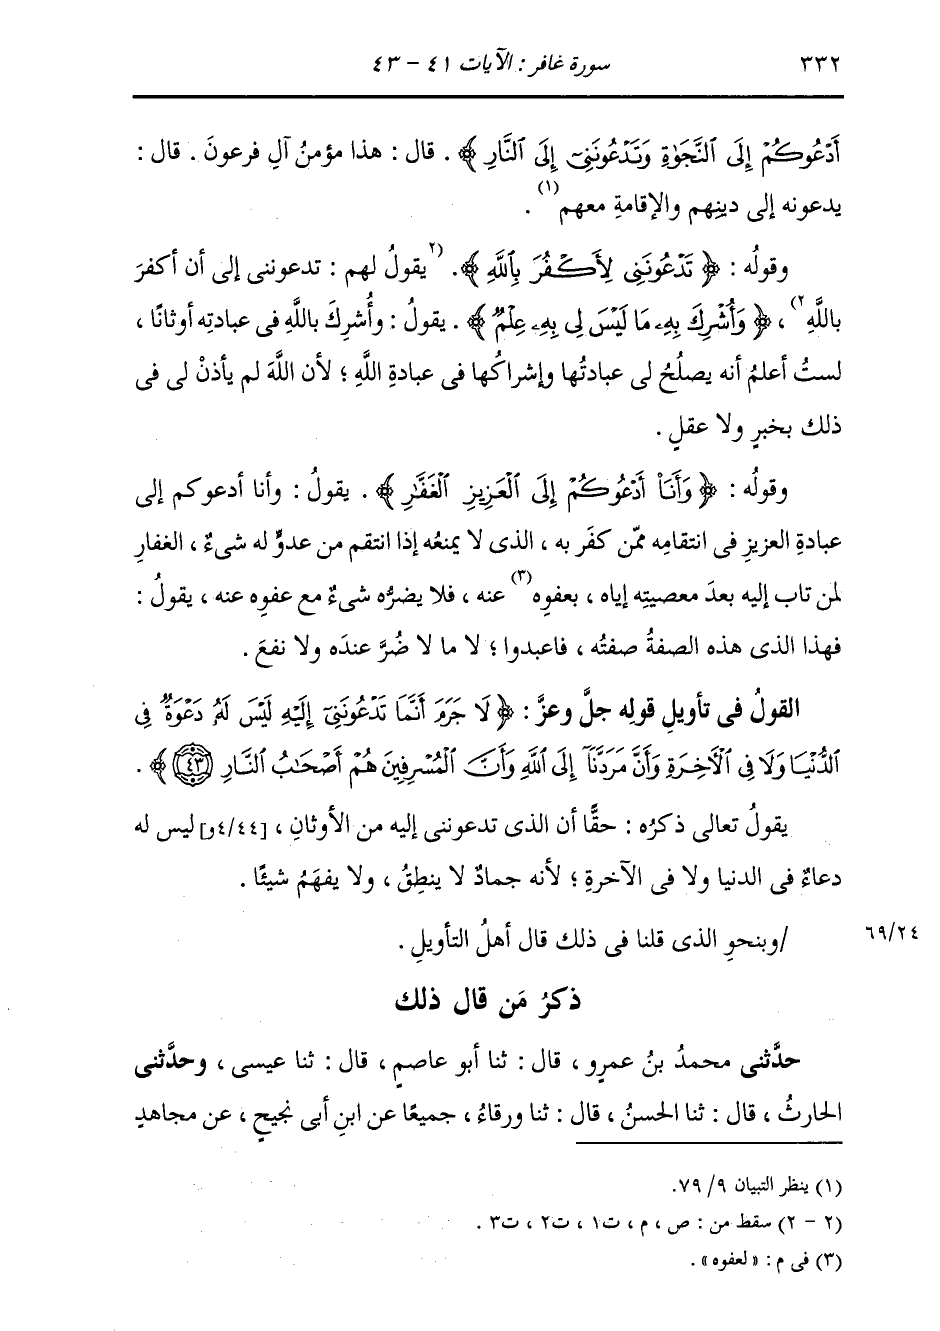 ٣٣٢ سورة غافر : الآيات ٤١ - ٤٣
أَدْعُوكُمْ إِلَى ٱلنَّجَوٰةِ وَتَدْعُونَنِىٓ إِلَى ٱلنَّارِ ﴾ . قال : هذا مؤمنُ آلِ فرعونَ . قال :
يدعونه إلى دينِهم والإقامةِ معهم(١) .
وقولُه : ﴿ تَدْعُونَنِى لِأَكْفُرَ بِٱللَّهِ ﴾. (٢يقولُ لهم : تدعوننى إلى أن أكفرَ
باللَّهِ٢) ، ﴿ وَأُشْرِكَ بِهِۦ مَا لَيْسَ لِى بِهِۦ عِلْمٌ ﴾ . يقولُ : وأُشرِكَ باللَّهِ فى عبادتِه أوثانًا ،
لستُ أعلمُ أنه يصلُحُ لى عبادتُها وإشراكُها فى عبادةِ اللَّهِ ؛ لأن اللَّهَ لم يأذنْ لى فى
ذلك بخبرٍ ولا عقلٍ .
وقولُه : ﴿ وَأَنَا۠ أَدْعُوكُمْ إِلَى ٱلْعَزِيزِ ٱلْغَفَّٰرِ ﴾ . يقولُ : وأنا أدعوكم إلى
عبادةِ العزيزِ فى انتقامِه ممّن كفَر به ، الذى لا يمنعُه إذا انتقم من عدوٍّ له شىءٌ ، الغفارِ
لمن تاب إليه بعدَ معصيتِه إياه ، بعفوِه(٣) عنه ، فلا يضرُّه شىءٌ مع عفوِه عنه ، يقولُ :
فهذا الذى هذه الصفةُ صفتُه ، فاعبدوا ؛ لا ما لا ضُرَّ عندَه ولا نفعَ .
القولُ فى تأويلِ قولِه جلَّ وعزَّ : ﴿ لَا جَرَمَ أَنَّمَا تَدْعُونَنِىٓ إِلَيْهِ لَيْسَ لَهُۥ دَعْوَةٌ فِى
ٱلدُّنْيَا وَلَا فِى ٱلْأَخِرَةِ وَأَنَّ مَرَدَّنَآ إِلَى ٱللَّهِ وَأَنَّ ٱلْمُسْرِفِينَ هُمْ أَصْحَٰبُ ٱلنَّارِ ٤٣ ﴾ .
يقولُ تعالى ذكرُه : حقًّا أن الذى تدعوننى إليه من الأوثانِ ، [٤/٤٤و] ليس له
دعاءٌ فى الدنيا ولا فى الآخرةِ ؛ لأنه جمادٌ لا ينطِقُ ، ولا يفهَمُ شيئًا .
/وبنحوِ الذى قلنا فى ذلك قال أهلُ التأويلِ . ٦٩/٢٤
ذكرُ مَن قال ذلك
حدَّثنى محمدُ بنُ عمرٍو ، قال : ثنا أبو عاصمٍ ، قال : ثنا عيسى ، وحدَّثنى
الحارثُ ، قال : ثنا الحسنُ ، قال : ثنا ورقاءُ ، جميعًا عن ابنِ أبى نجيحٍ ، عن مجاهدٍ
(١) ينظر التبيان ٩/ ٧٩.
(٢ - ٢) سقط من : ص ، م ، ت١ ، ت٢ ، ت٣ .
(٣) فى م : « لعفوه » .